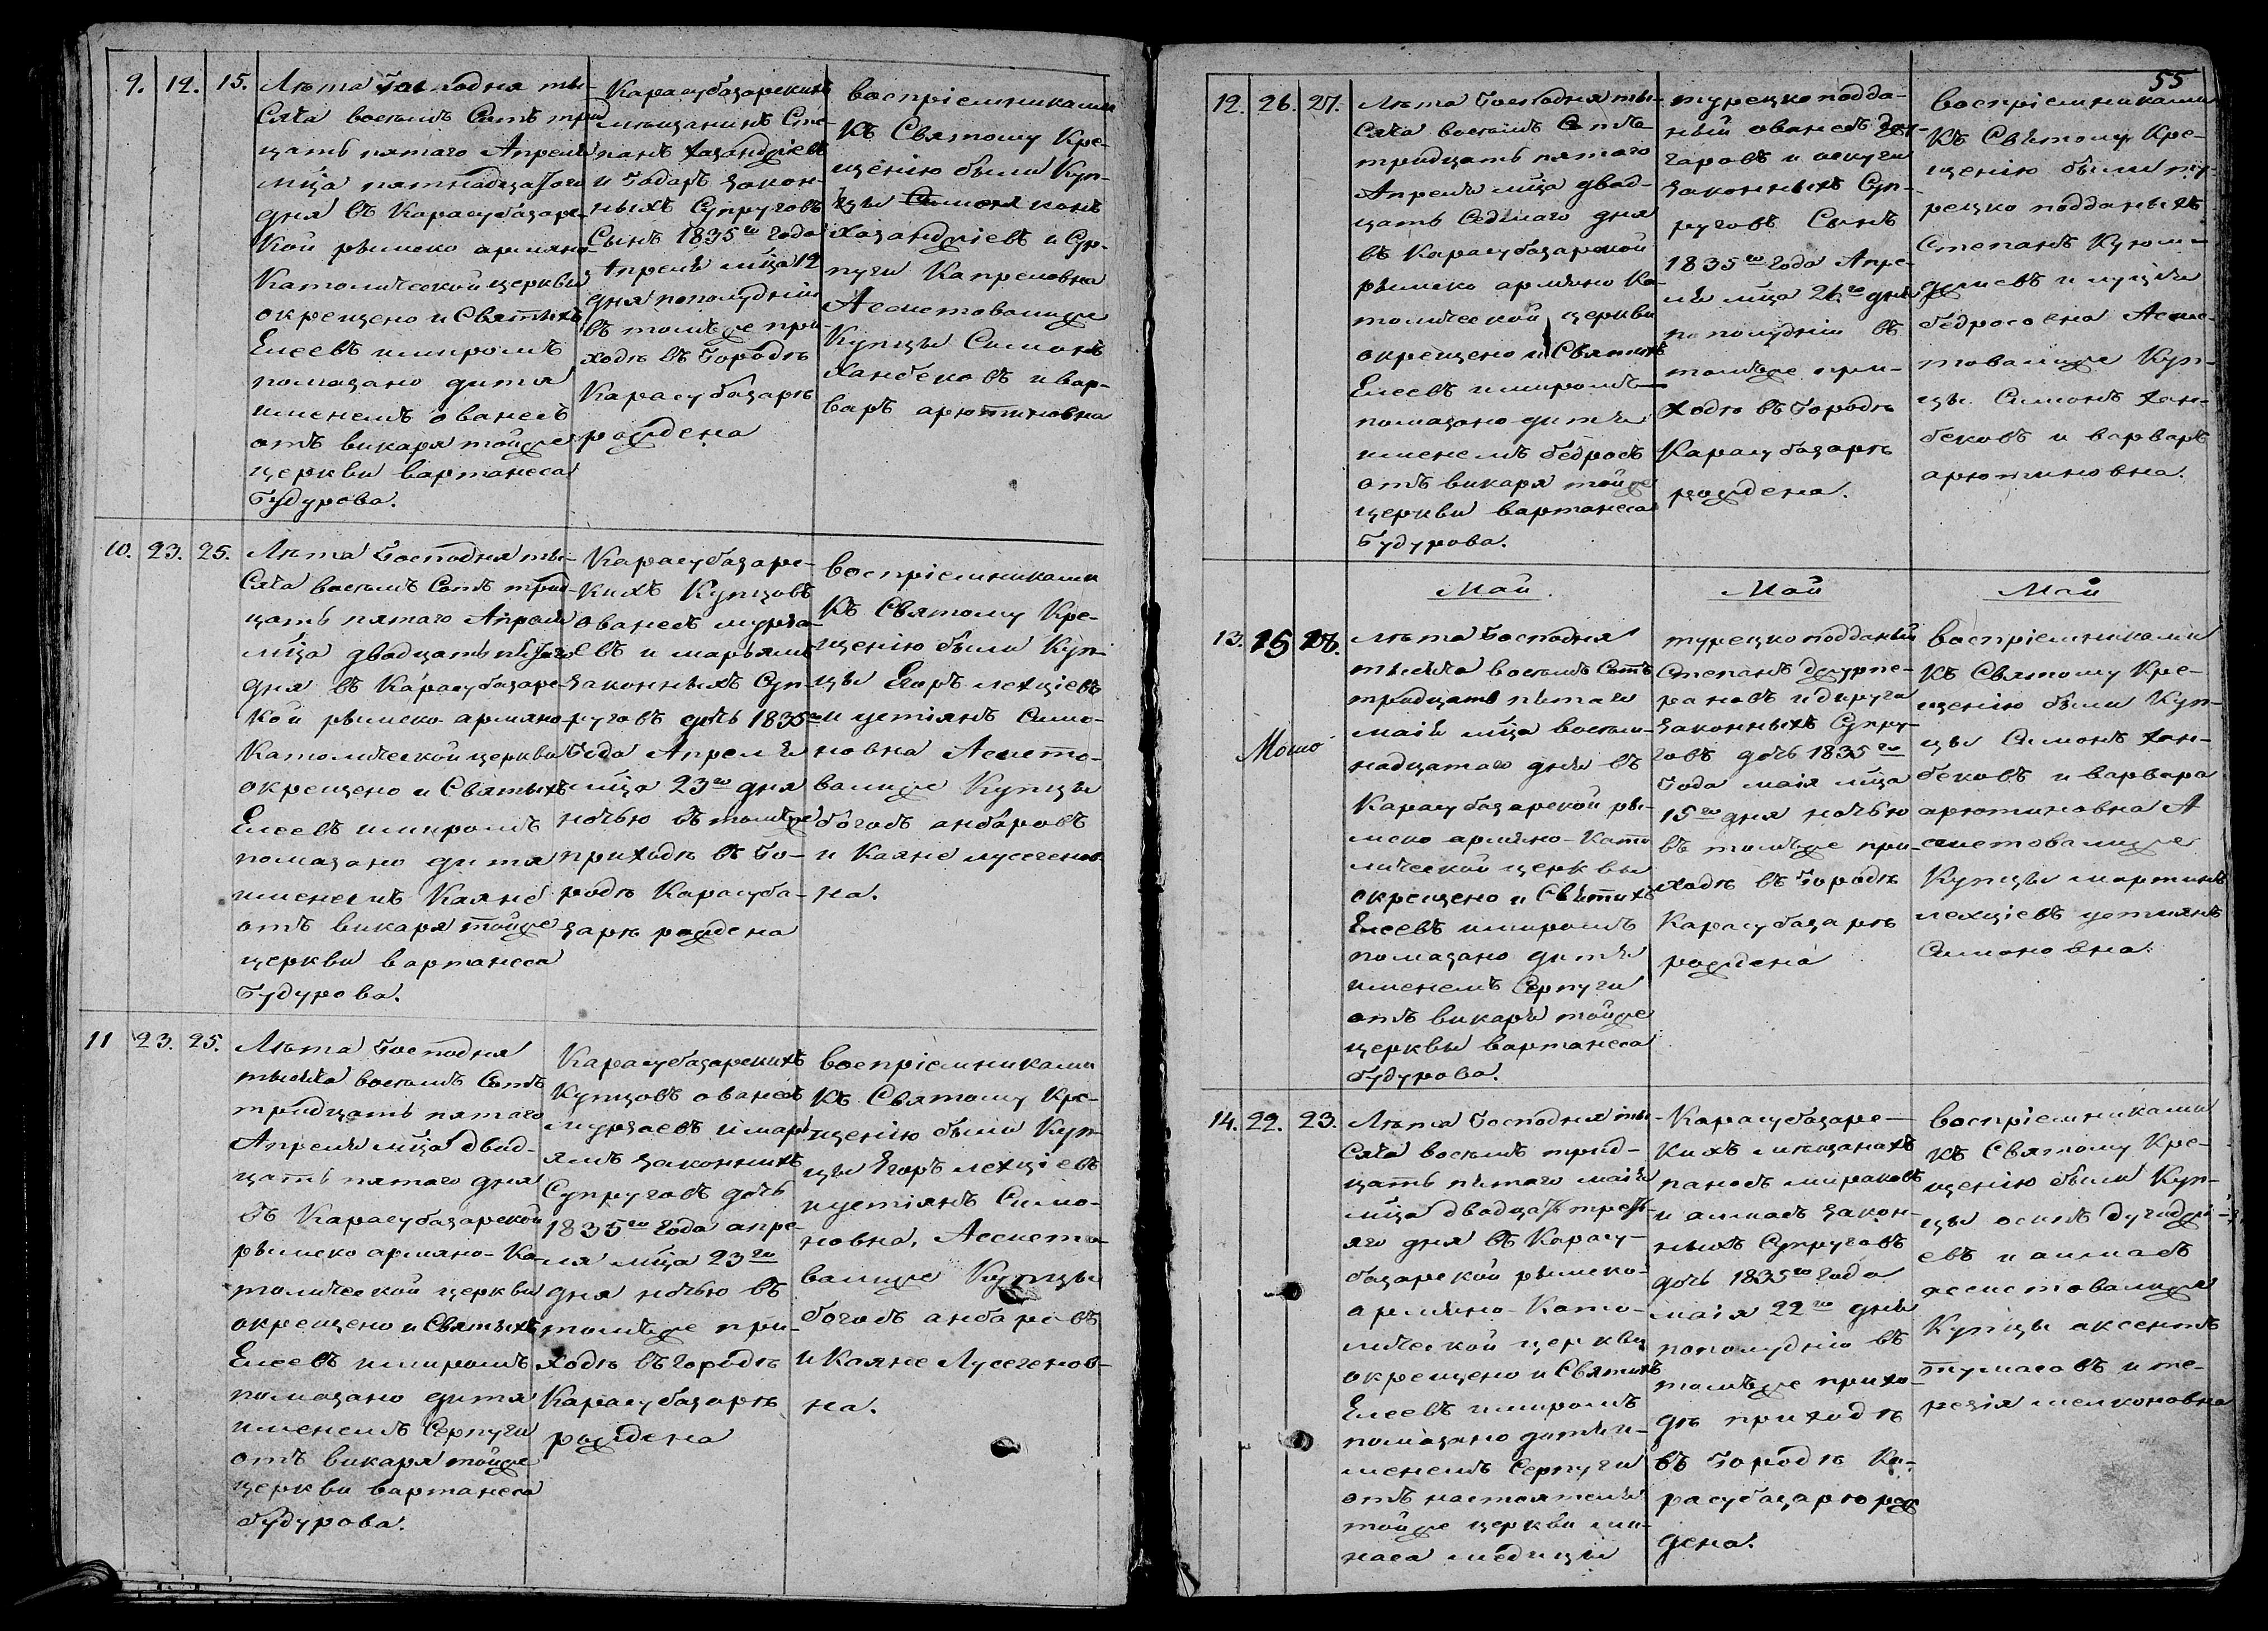 9. 12. 15.
Лѣта Господня ты-
сяча восемь Сотъ трид
цать пятаго Апреля
мца пятнадцатого
дня въ Карасубазарс
кой римско армяно-
Католической церкви
окрещено и Святыхъ
Елеевъ и миромъ
помазано дитя
именемъ ованесъ
отъ викаря тойже
церкви вартанеса
Гудурова.
Карасубазарскихъ
мещанинъ Сте-
панъ Хазанджіевъ
и закон-
ныхъ Супруговъ
Сынъ 1835го года
Апреля мца 12
дня пополудніи
въ томъже при-
ходѣ въ Городѣ
Карасубазарѣ
рождена
воспріемниками
Къ Святому Кре-
щенію были Куп-
цы
хазанджіевъ и Ср-
пуги Капреловна
Асистовалиже
Купцы Симонъ
Ханбековъ и вар-
варъ арютиновна
10. 23. 25.
Лѣта Господня ты-
Сяча восемь Сотъ трид-
цать пятаго Апреля
мца двадцать пятого
дня въ Карасубазарс-
кой римско армяно-
Католической церкви
окрещено и Святыхъ
Елеевъ и миромъ
помазано дитя
именемъ Каяне
отъ викаря тойже
церкви вартанеса
Гудурова.
Карасубазарс-
кихъ Купцовъ
ованесъ мурза-
евъ и марьямъ
законныхъ Суп-
руговъ дочь 1835го
Года Апреля
мца 23го дня
ночью въ томъже
приходѣ въ Го-
родѣ Карасуба-
зарѣ рождена
воспріемниками
Къ Святому Кре-
щенію были Куп-
цы Егоръ лехціевъ
и устіянъ Симо-
новна Асисто-
валиже Купцы
богосъ анбаровъ
и Каяне лусегенов-
на.
11 23. 25.
Лѣта Господня
тысяча восемь Сотъ
тридцать пятаго
Апреля мца двад-
цать пятаго дня
въ Карасубазарской
римско армяно-Ка-
толической церкви
окрещено и Святыхъ
Елеевъ и миромъ
помазано дитя
именемъ Серпуги
отъ викаря тойже
церкви вартанеса
Гудурова.
Карасубазарскихъ
Купцовъ ованесъ
мурзаевъ и марь
ямъ законныхъ
Супруговъ дочь
1835го года апре-
ля мца 23го
дня ночью въ
томъже при-
ходѣ въ городѣ
Карасубазарѣ
рождена
воспріемниками
Къ Святому Кре-
щенію были Куп-
цы Егоръ лехціевъ
и устіянъ Симо-
новна, Асисто-
валиже Купцы
богосъ анбаровъ
и Каяне Лусегенов-
на.
55
12. 26. 27.
Лѣта Господня ты-
Сяча восемь Сотъ
тридцать пятаго
Апреля мца двад-
цать Седмаго дня
въ Карасубазарской
римско армяно Ка-
толической церкви
окрещено и Святыхъ
Елеевъ и миромъ
помазано дитя
именемъ бедросъ
отъ викаря тойже
церкви вартанеса
Гудурова.
турецко подда-
ный ованесъ
гаровъ и
законныхъ Суп-
руговъ Сынъ
1835го года Апре-
ля мца 26го дня
пополудніи въ
томъже при-
ходѣ въ Городѣ
Карасубазарѣ
рождена.
воспріемниками
Къ Святому Кре-
щенію были ту-
рецко подданыхъ
Степанъ Куюм-
джиевъ и
бедросовна Асис-
товалиже Куп-
цы Симонъ хан-
бековъ и варваръ
арютиновна.
Май Май Май
13. 15 18.
Мошо
Лѣта Господня
тысяча восемь Сотъ
тридцать пятаго
маія мца восем-
надцатаго дня въ
Карасубазарской ри-
мско армяно-Като
лической церквы
окрещено и Святихъ
Елеевъ и миромъ
помазано дитя
именемъ Серпуги
отъ викаря тойже
церквы вартанеса
Гудурова.
турецко подданый
Степанъ
рановъ
законныхъ Супру-
говъ дочь 1835го
Года маія мца
15го дня ночью
въ томъже при-
ходѣ въ Городѣ
Карасубазарѣ
рождена
воспріемниками
Къ Святому Кре-
щенію были Куп-
цы Симонъ хан-
бековъ и варвара
арютиновна А
систовалиже
Купцы мартинъ
лехціевъ устиянъ
Симоновна.
14. 22. 23.
Лѣта Господня ты-
Сяча восемь трид-
цать пятаго маія
мца двадцать треть-
яго дня въ Карасу-
базарской римско-
армяно-Като-
лической церкви
окрещено и Святихъ
Елеевъ и миромъ
помазано дитя и-
менемъ Серпуги
отъ настоятеля
тойже церкви ми-
наса медици
Карасубазарс-
кихъ мещанахъ
паносъ мираковъ
и алмасъ закон-
ныхъ Супруговъ
дочь 1835го Года
маія 22го дня
пополудніо въ
томъже прихо-
дѣ приходѣ
въ Городѣ Ка-
расубазарю рож
дена.
воспріемниками
Къ Святому Кре-
щенію были Куп-
цы
евъ и алмасъ
асистовалиже
Купцы аксентъ
тумасовъ и те-
резія мелконовна